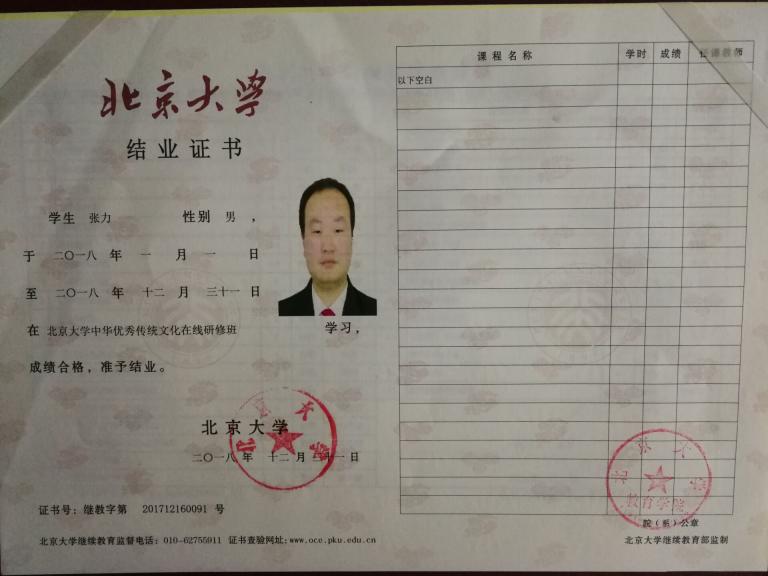 北京大学
结业证书
学生 张力 性别 男 ,
于 二〇一八 年 一 月 一 日
至 二〇一八 年 十二 月 三十一 日
在 北京大学中华优秀传统文化在线研修班 学习,
成绩合格,准予结业。
北京大学
二〇一八 年 十二 月 三十一 日
北京大学
证书号:继教字第 201712160091 号
北京大学继续教育监督电话:010-62755911 证书查验网址:www.oce.pku.edu.cn
课程名称 学时 成绩 任课教师
以下空白
北京大学
教育学院
院(系)公章
北京大学继续教育部监制